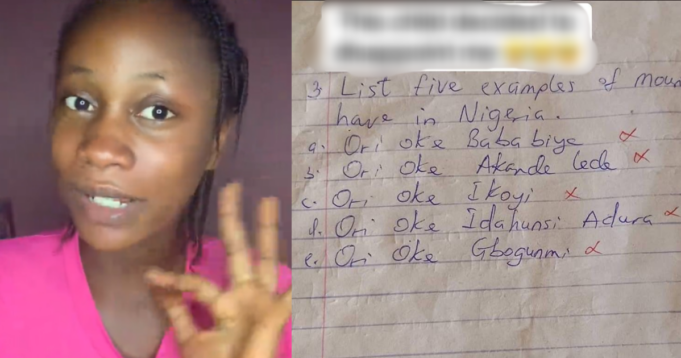 3 List five examples of moun
have in Nigeria.
a. Ori oke Baba biye
b. Ori oke Akande lede
c. Ori oke Ikoyi
d. Ori oke Idahunsi Adura
e. Ori Oke Gbogunmi